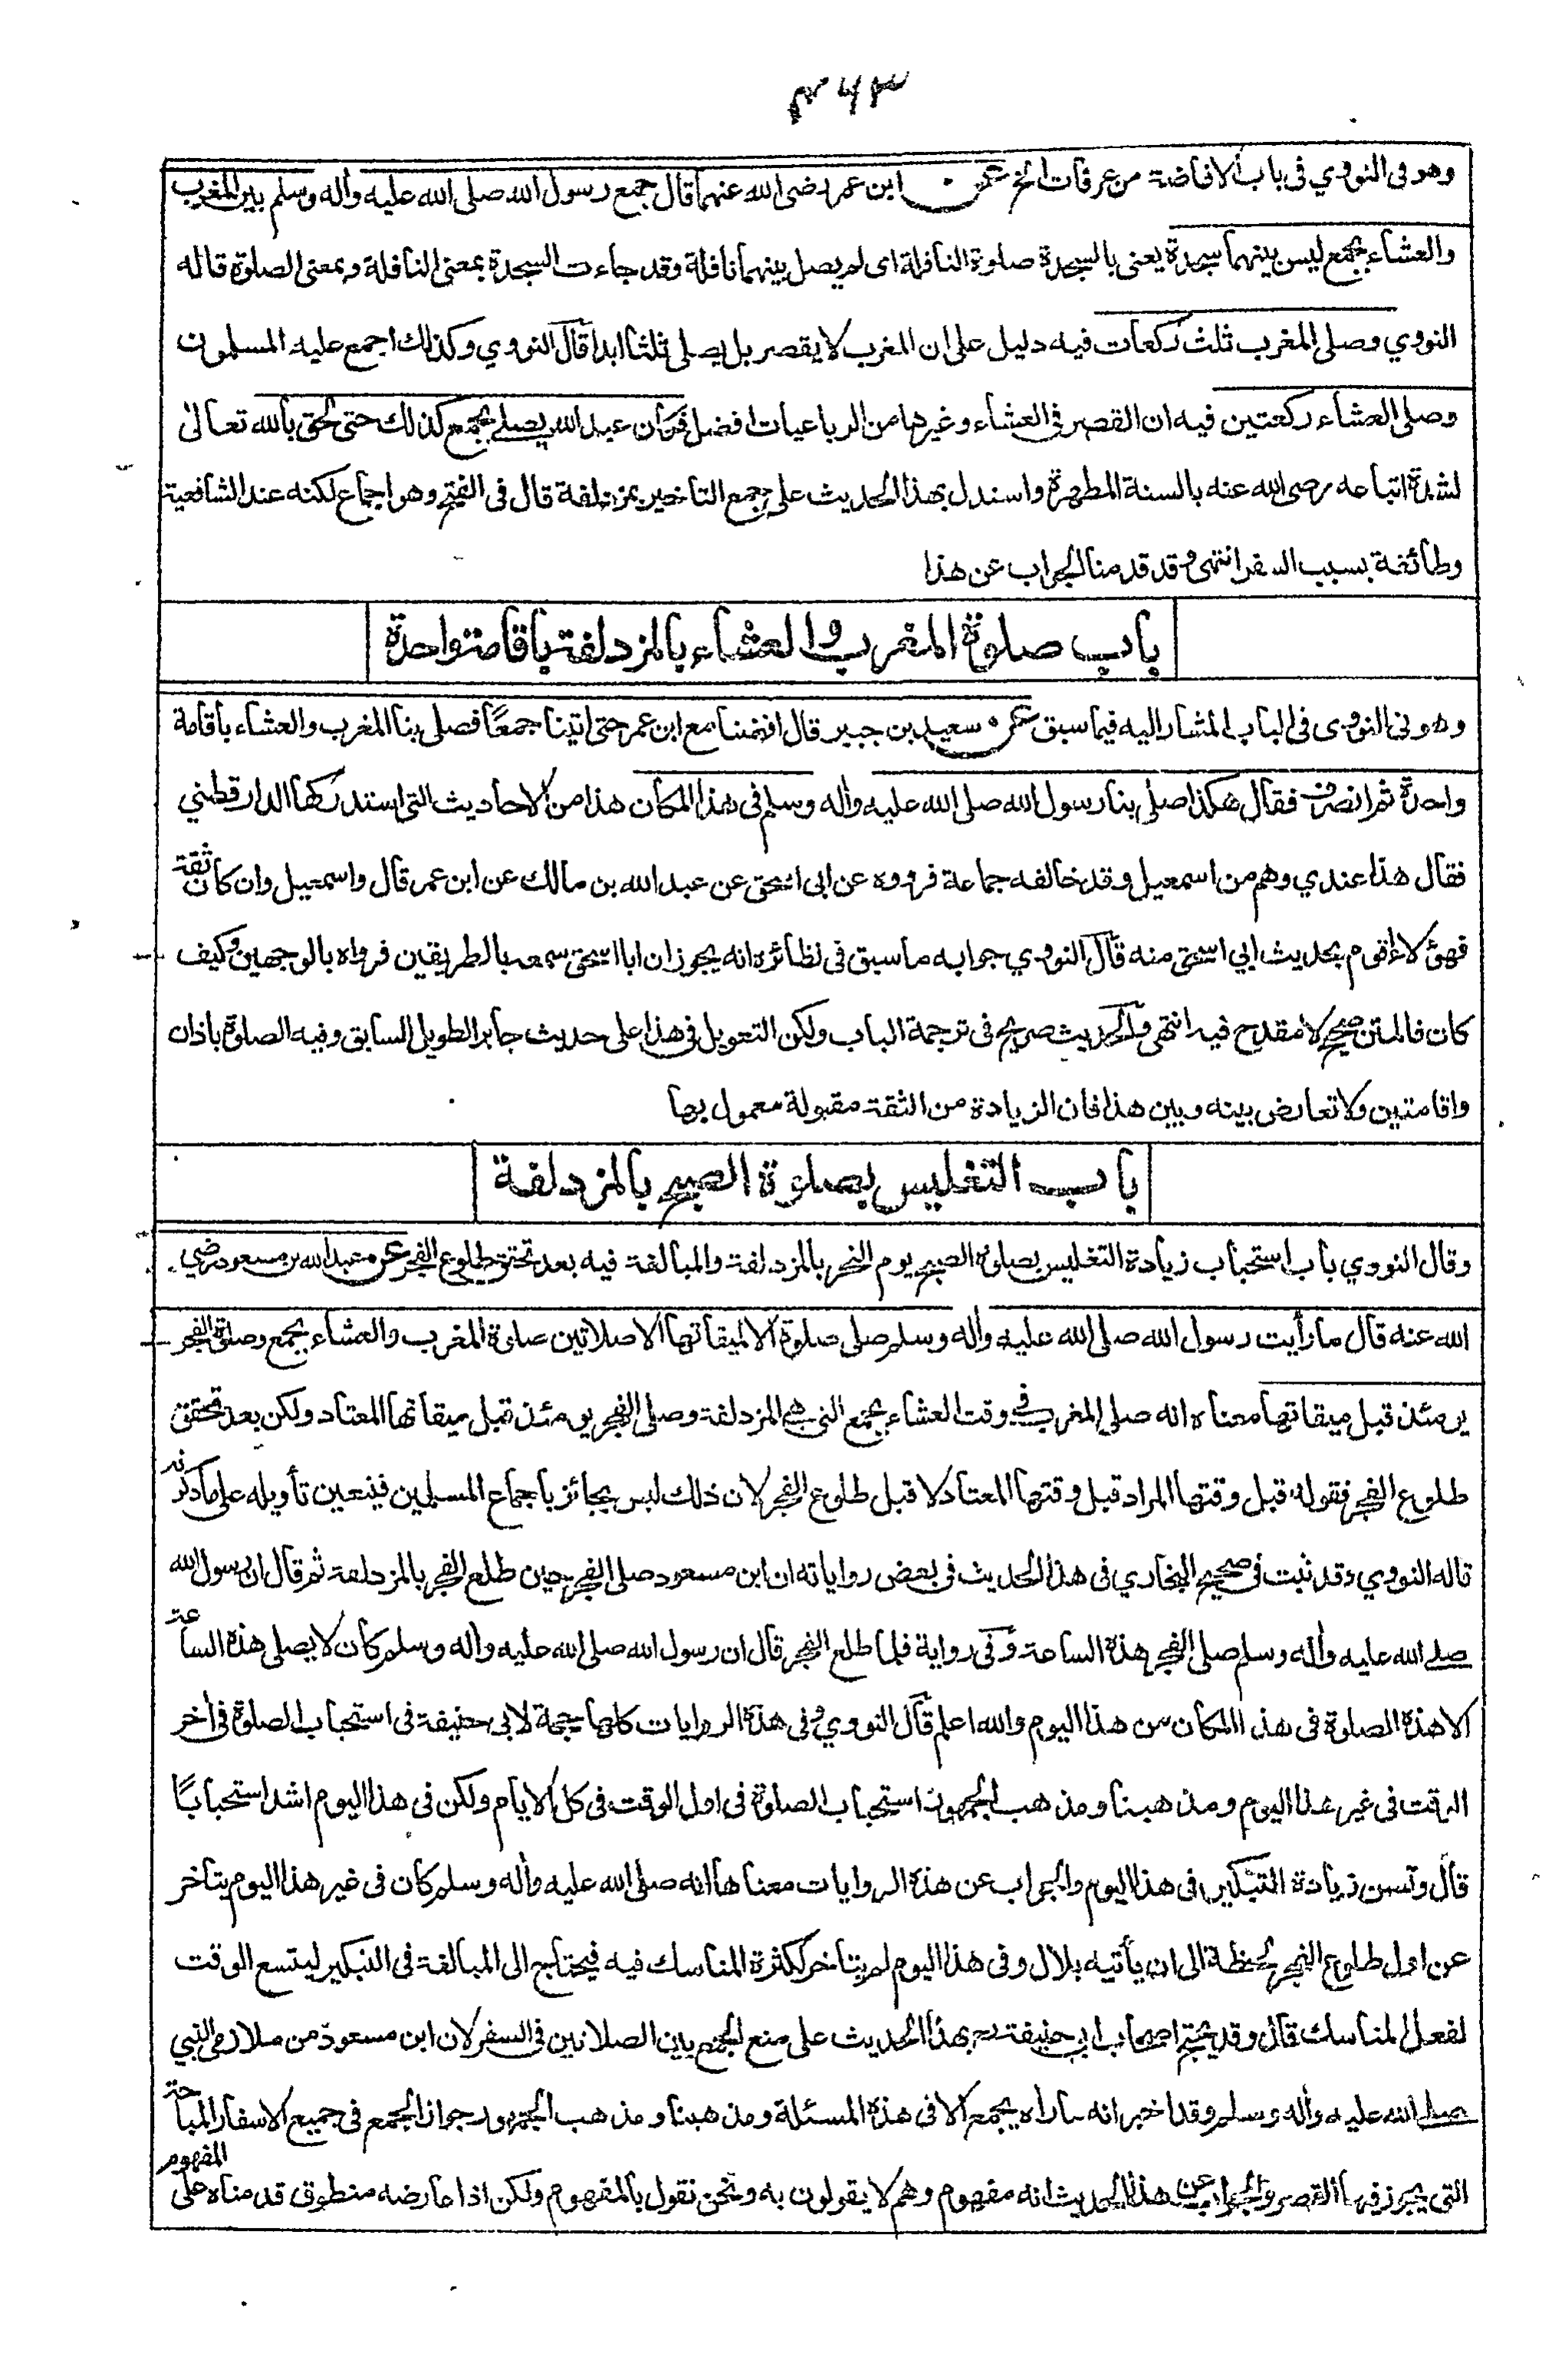 ٤٦٣
وهو في النووي في باب الافاضة من عرفات الخ عن ابن عمر رضى الله عنهما قال جمع رسول الله صلى الله عليه وأله وسلم بين المغرب
والعشاء بجمع ليس بينهما سجدة يعنى بالسجدة صلوة النافلة اى لم يصل بينهما نافلة وقد جاءت السجدة بمعنى النافلة وبمعنى الصلوة قاله
النووي وصلى المغرب ثلث ركعات فيه دليل على ان المغرب لا يقصر بل يصلى ثلثا ابدا قال النووي وكذلك اجمع عليه المسلمون
وصلى العشاء ركعتين فيه ان القصر في العشاء وغيرها من الرباعيات افضل فكان عبد الله يصلى بجمع كذلك حتى لحق بالله تعالىٰ
لشدة اتباعه رضى الله عنه بالسنة المطهرة واستدل بهذا الحديث على جمع التاخير بمزدلفة قال فى الفتح وهو اجماع لكنه عند الشافعية
وطائفة بسبب السفر انتهى وقد قدمنا الجواب عن هذا
باب صلوة المغرب والعشاء بالمزدلفة باقامة واحدة
وهو في النووى فى الباب المشار اليه فيما سبق عن سعيد بن جبير قال افضنا مع ابن عمر حتى اتينا جمعًا فصلى بنا المغرب والعشاء باقامة
واحدة ثم انصرف فقال هكذا صلى بنا رسول الله صلى الله عليه وأله وسلم في هذا المكان هذا من الاحاديث التى استدركها الدارقطني
فقال هذا عندي وهم من اسمعيل وقد خالفه جماعة فرووه عن ابى اسحق عن عبد الله بن مالك عن ابن عمر قال واسمعيل وان كان ثقة
فهؤلاء اقوم بحديث ابي اسحق منه قال النووي جوابه ما سبق فى نظائره انه يجوز ان ابا اسحق سمعه بالطريقين فرواه بالوجهين وكيف
كان فالمتن صحيح لا مقدح فيه انتهى والحديث صريح فى ترجمة الباب ولكن التعويل في هذا على حديث جابر الطويل السابق وفيه الصلوة باذان
واقامتين ولا تعارض بينه وبين هذا فان الزيادة من الثقة مقبولة معمول بها
باب التغليس بصلوة الصبح بالمزدلفة
وقال النووي باب استحباب زيادة التغليس بصلوة الصبح يوم النحر بالمزدلفة والمبالغة فيه بعد تحقق طلوع الفجر عن عبد الله بن مسعود رضي
الله عنه قال ما رأيت رسول الله صلى الله عليه وأله وسلم صلى صلوة الا لميقاتها الا صلاتين صلوة المغرب والعشاء بجمع وصلوة الفجر
يومئذ قبل ميقاتها معناه انه صلى المغرب في وقت العشاء بجمع التي هي المزدلفة وصلى الفجر يومئذ قبل ميقاتها المعتاد ولكن بعد تحقق
طلوع الفجر فقوله قبل وقتها المراد قبل وقتها المعتاد لا قبل طلوع الفجر لان ذلك ليس بجائز باجماع المسلمين فيتعين تأويله على ما ذكرته
قاله النووي وقد ثبت فى صحيح البخاري فى هذا الحديث فى بعض رواياته ان ابن مسعود صلى الفجر حين طلع الفجر بالمزدلفة ثم قال ان رسول الله
صلى الله عليه وأله وسلم صلى الفجر هذه الساعة وفى رواية فلما طلع الفجر قال ان رسول الله صلى الله عليه وأله وسلم كان لا يصلى هذه الساعة
الا هذه الصلوة فى هذا المكان من هذا اليوم والله اعلم قال النووي وفى هذه الروايات كلها حجة لابى حنيفة فى استحباب الصلوة فى أخر
الوقت فى غير هذا اليوم ومذهبنا ومذهب الجمهور استحباب الصلوة فى اول الوقت فى كل الايام ولكن فى هذا اليوم اشد استحبابًا
قال وتسن زيادة التبكير فى هذا اليوم والجواب عن هذه الروايات معناها انه صلى الله عليه وأله وسلم كان فى غير هذا اليوم يتاخر
عن اول طلوع الفجر لحظة الى ان يأتيه بلال وفى هذا اليوم لم يتاخر لكثرة المناسك فيه فيحتاج الى المبالغة فى التبكير ليتسع الوقت
لفعل المناسك قال وقد يحتج اصحاب ابى حنيفة رح بهذا الحديث على منع الجمع بين الصلاتين فى السفر لان ابن مسعود من ملازمى النبي
صلى الله عليه وأله وسلم وقد اخبر انه ما راه يجمع الا فى هذه المسئلة ومذهبنا ومذهب الجمهور جواز الجمع فى جميع الاسفار المباحة
التى يجوز فيها القصر والجواب عن هذا الحديث انه مفهوم وهم لا يقولون به ونحن نقول بالمفهوم ولكن اذا عارضه منطوق قدمناه على المفهوم